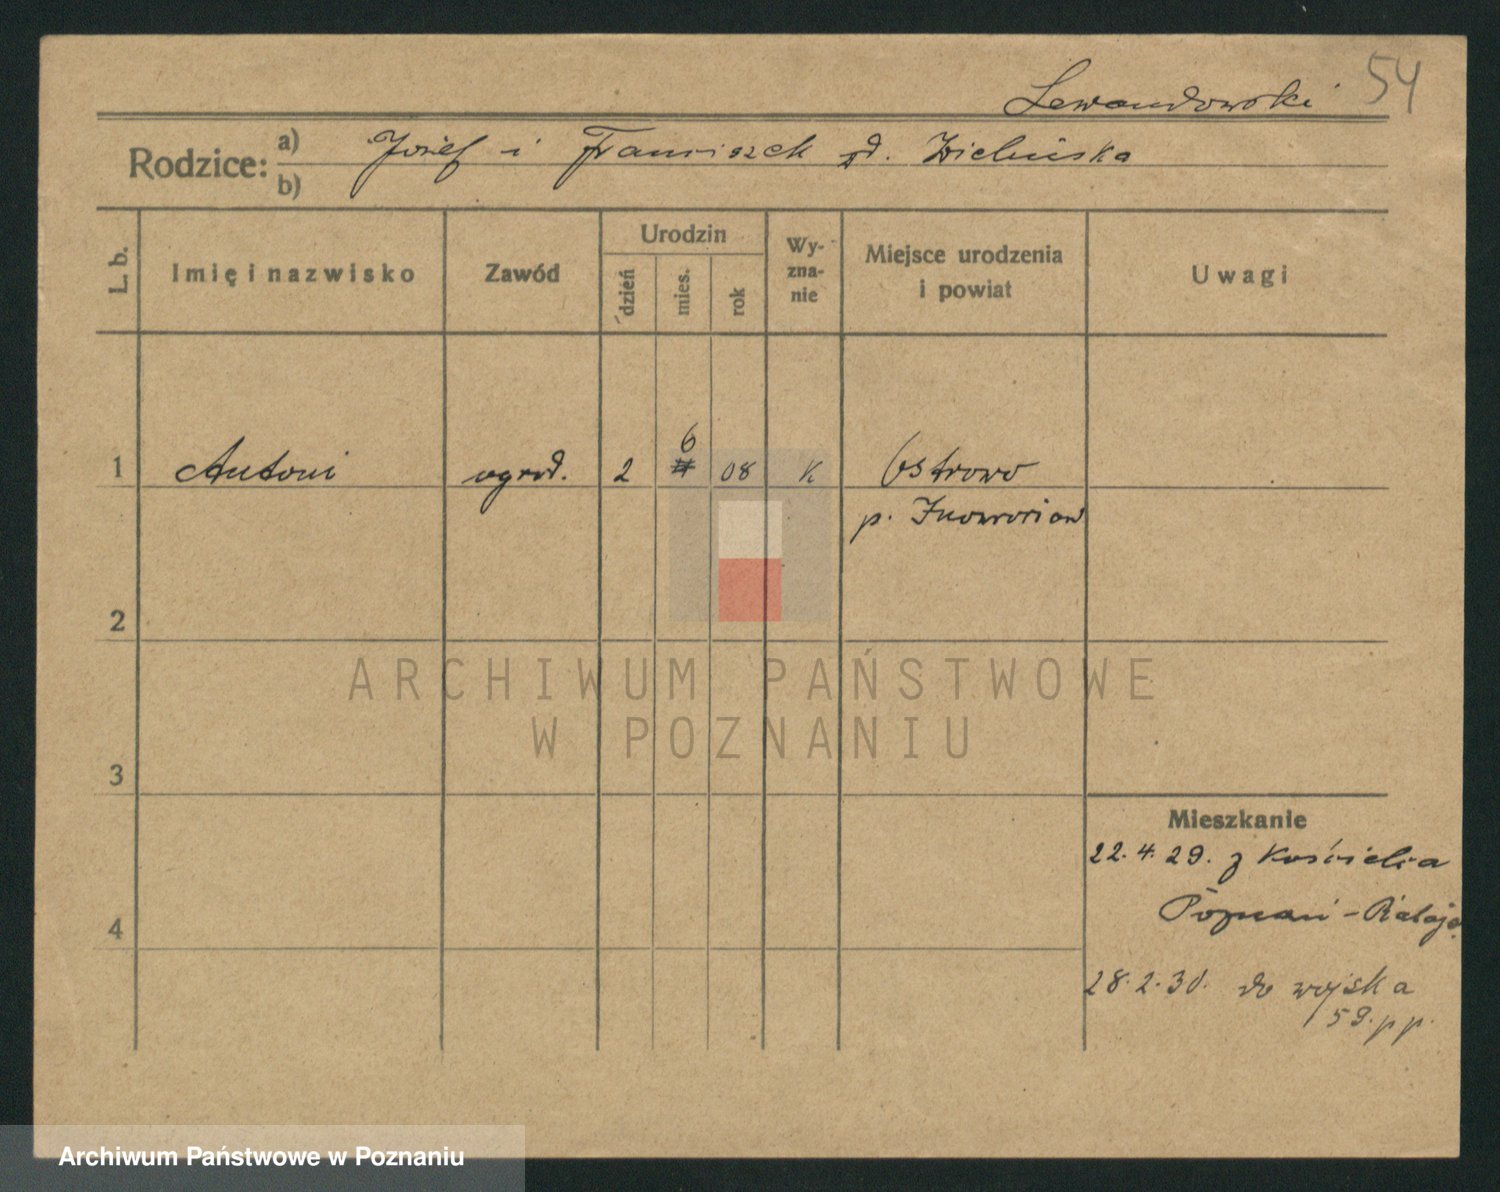 Lewandowski 54
Rodzice: a) Józef i Franciszek d. Zielińska
b)
L. b.
Imię i nazwisko
Zawód
Urodzin
dzień
mies.
rok
Wy-
zna-
nie
Miejsce urodzenia
i powiat
Uwagi
6
1 Antoni ogrod. 2 08 K Ostrowo
p. Inowrocław
2
ARCHIWUM PAŃSTWOWE
W POZNANIU
3
Mieszkanie
22.4.29. z Kościelca
Poznań - Rataje
4
28.2.30. do wojska
59. pp.
Archiwum Państwowe w Poznaniu